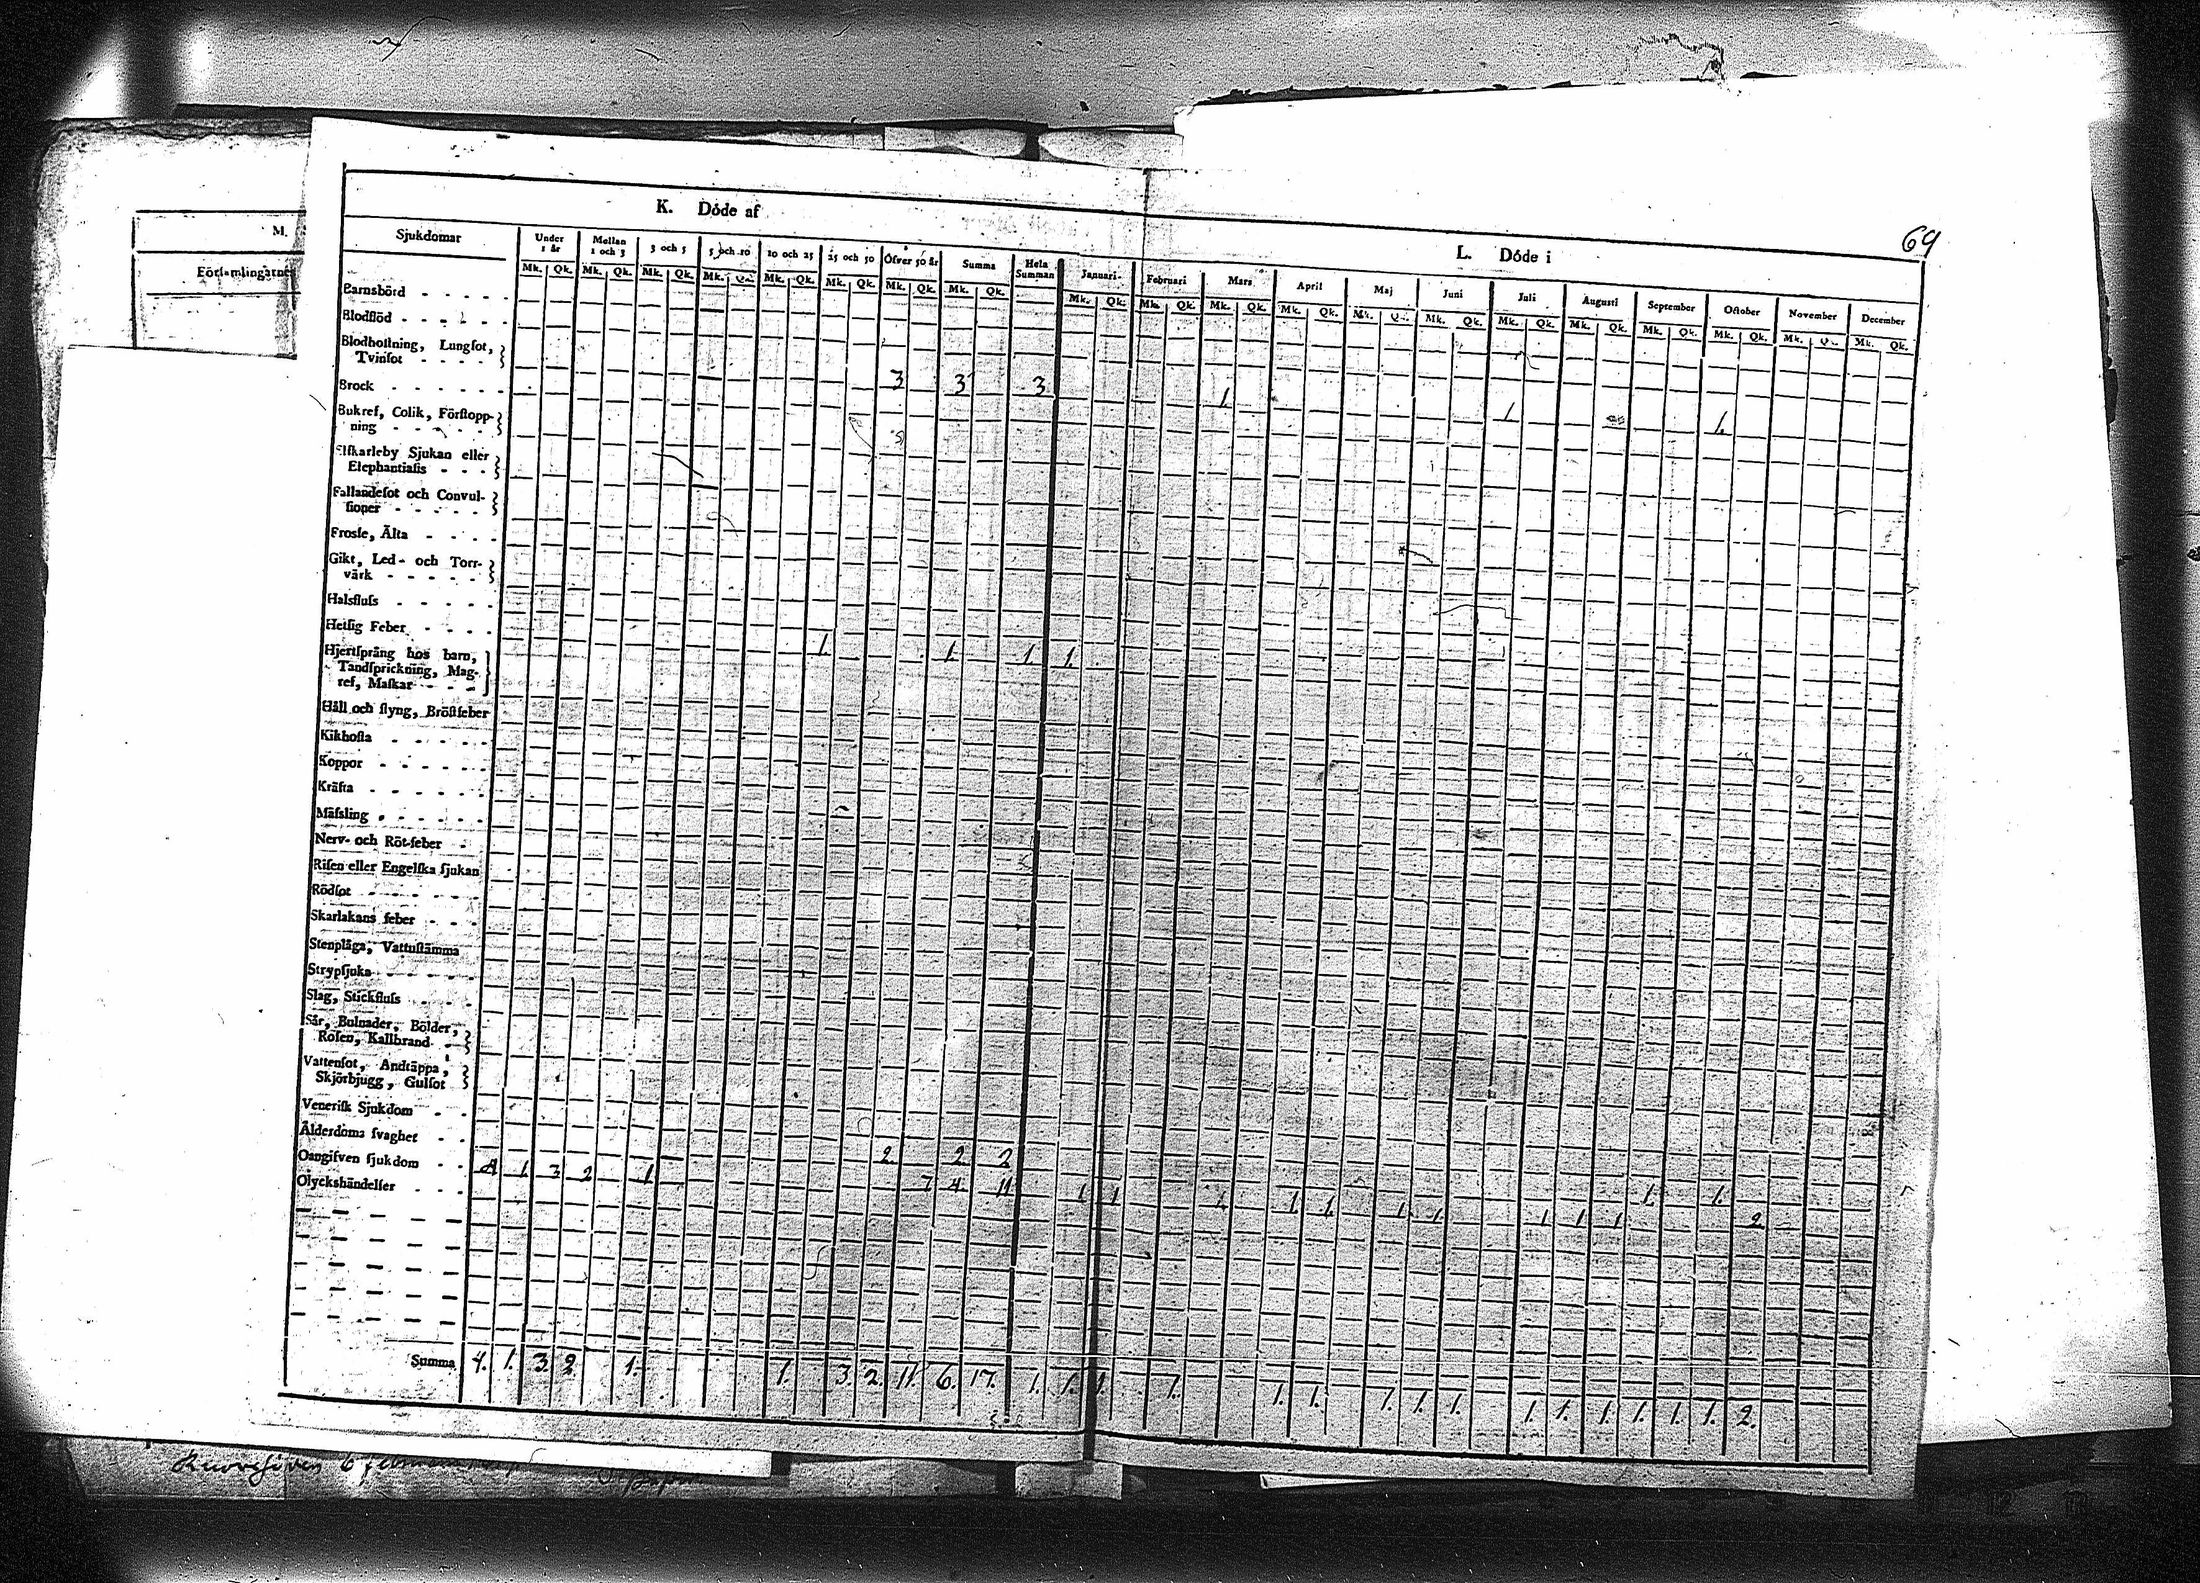 69
K. Döde af
L. Döde i
M.
Sjukdomar
Under 1 år
Mellan 1 och 3
3 och 5
5 och 10
10 och 25
25 och 50
Öfver 50 år
Summa
Hela Summan
Januari
Februari
Mars
April
Maj
Juni
Juli
Augusti
September
October
November
December
Mk. Qk. Mk. Qk. Mk. Qk. Mk. Qk. Mk. Qk. Mk. Qk. Mk. Qk. Mk. Qk.
Mk. Qk. Mk. Qk. Mk. Qk. Mk. Qk. Mk. Qk. Mk. Qk. Mk. Qk. Mk. Qk. Mk. Qk. Mk. Qk. Mk. Qk. Mk. Qk.
Barnsbörd
Blodflöd
Blodhoſtning, Lungſot,
Tvinſot 3 3 3 1 1 1.
Brock
Bukref, Colik, Förſtopp-
ning
Elfkarleby Sjukan eller
Elephantiaſis
Fallandeſot och Convul-
ſioner
Frosſe, Älta
Gikt, Led- och Torr-
värk
Halsfluſs
Hetſig Feber 1 1. 1. 1.
Hjertſprång hos barn,
Tandſprickning, Mag-
ref, Maſkar
Håll och ſtyng, Bröſtfeber
Kikhoſta
Koppor
Kräfta
Mäſsling
Nerv- och Röt-feber
Riſen eller Engelſka ſjukan
Rödſot
Skarlakans feber
Stenplåga, Vattuſtämma
Strypſjuka
Slag, Stickfluſs
Sår, Bulnader, Bölder,
Roſen, Kallbrand
Vattenſot, Andtäppa,
Skjörbjugg, Gulſot
Veneriſk Sjukdom
Ålderdoms ſvaghet 2 2 2
Oangifven ſjukdom 4 1. 3 2 1 7 4 11 1 1 1. 1. 1. 1 1 1 1 1 1 1. 2
Olyckshändelſer
Summa 4. 1. 3. 2. 1. 1. 3. 2. 11. 6. 17. 1. 1. 1. 1. 1. 1. 1. 1. 1. 1. 1. 1. 1. 1. 1. 2.